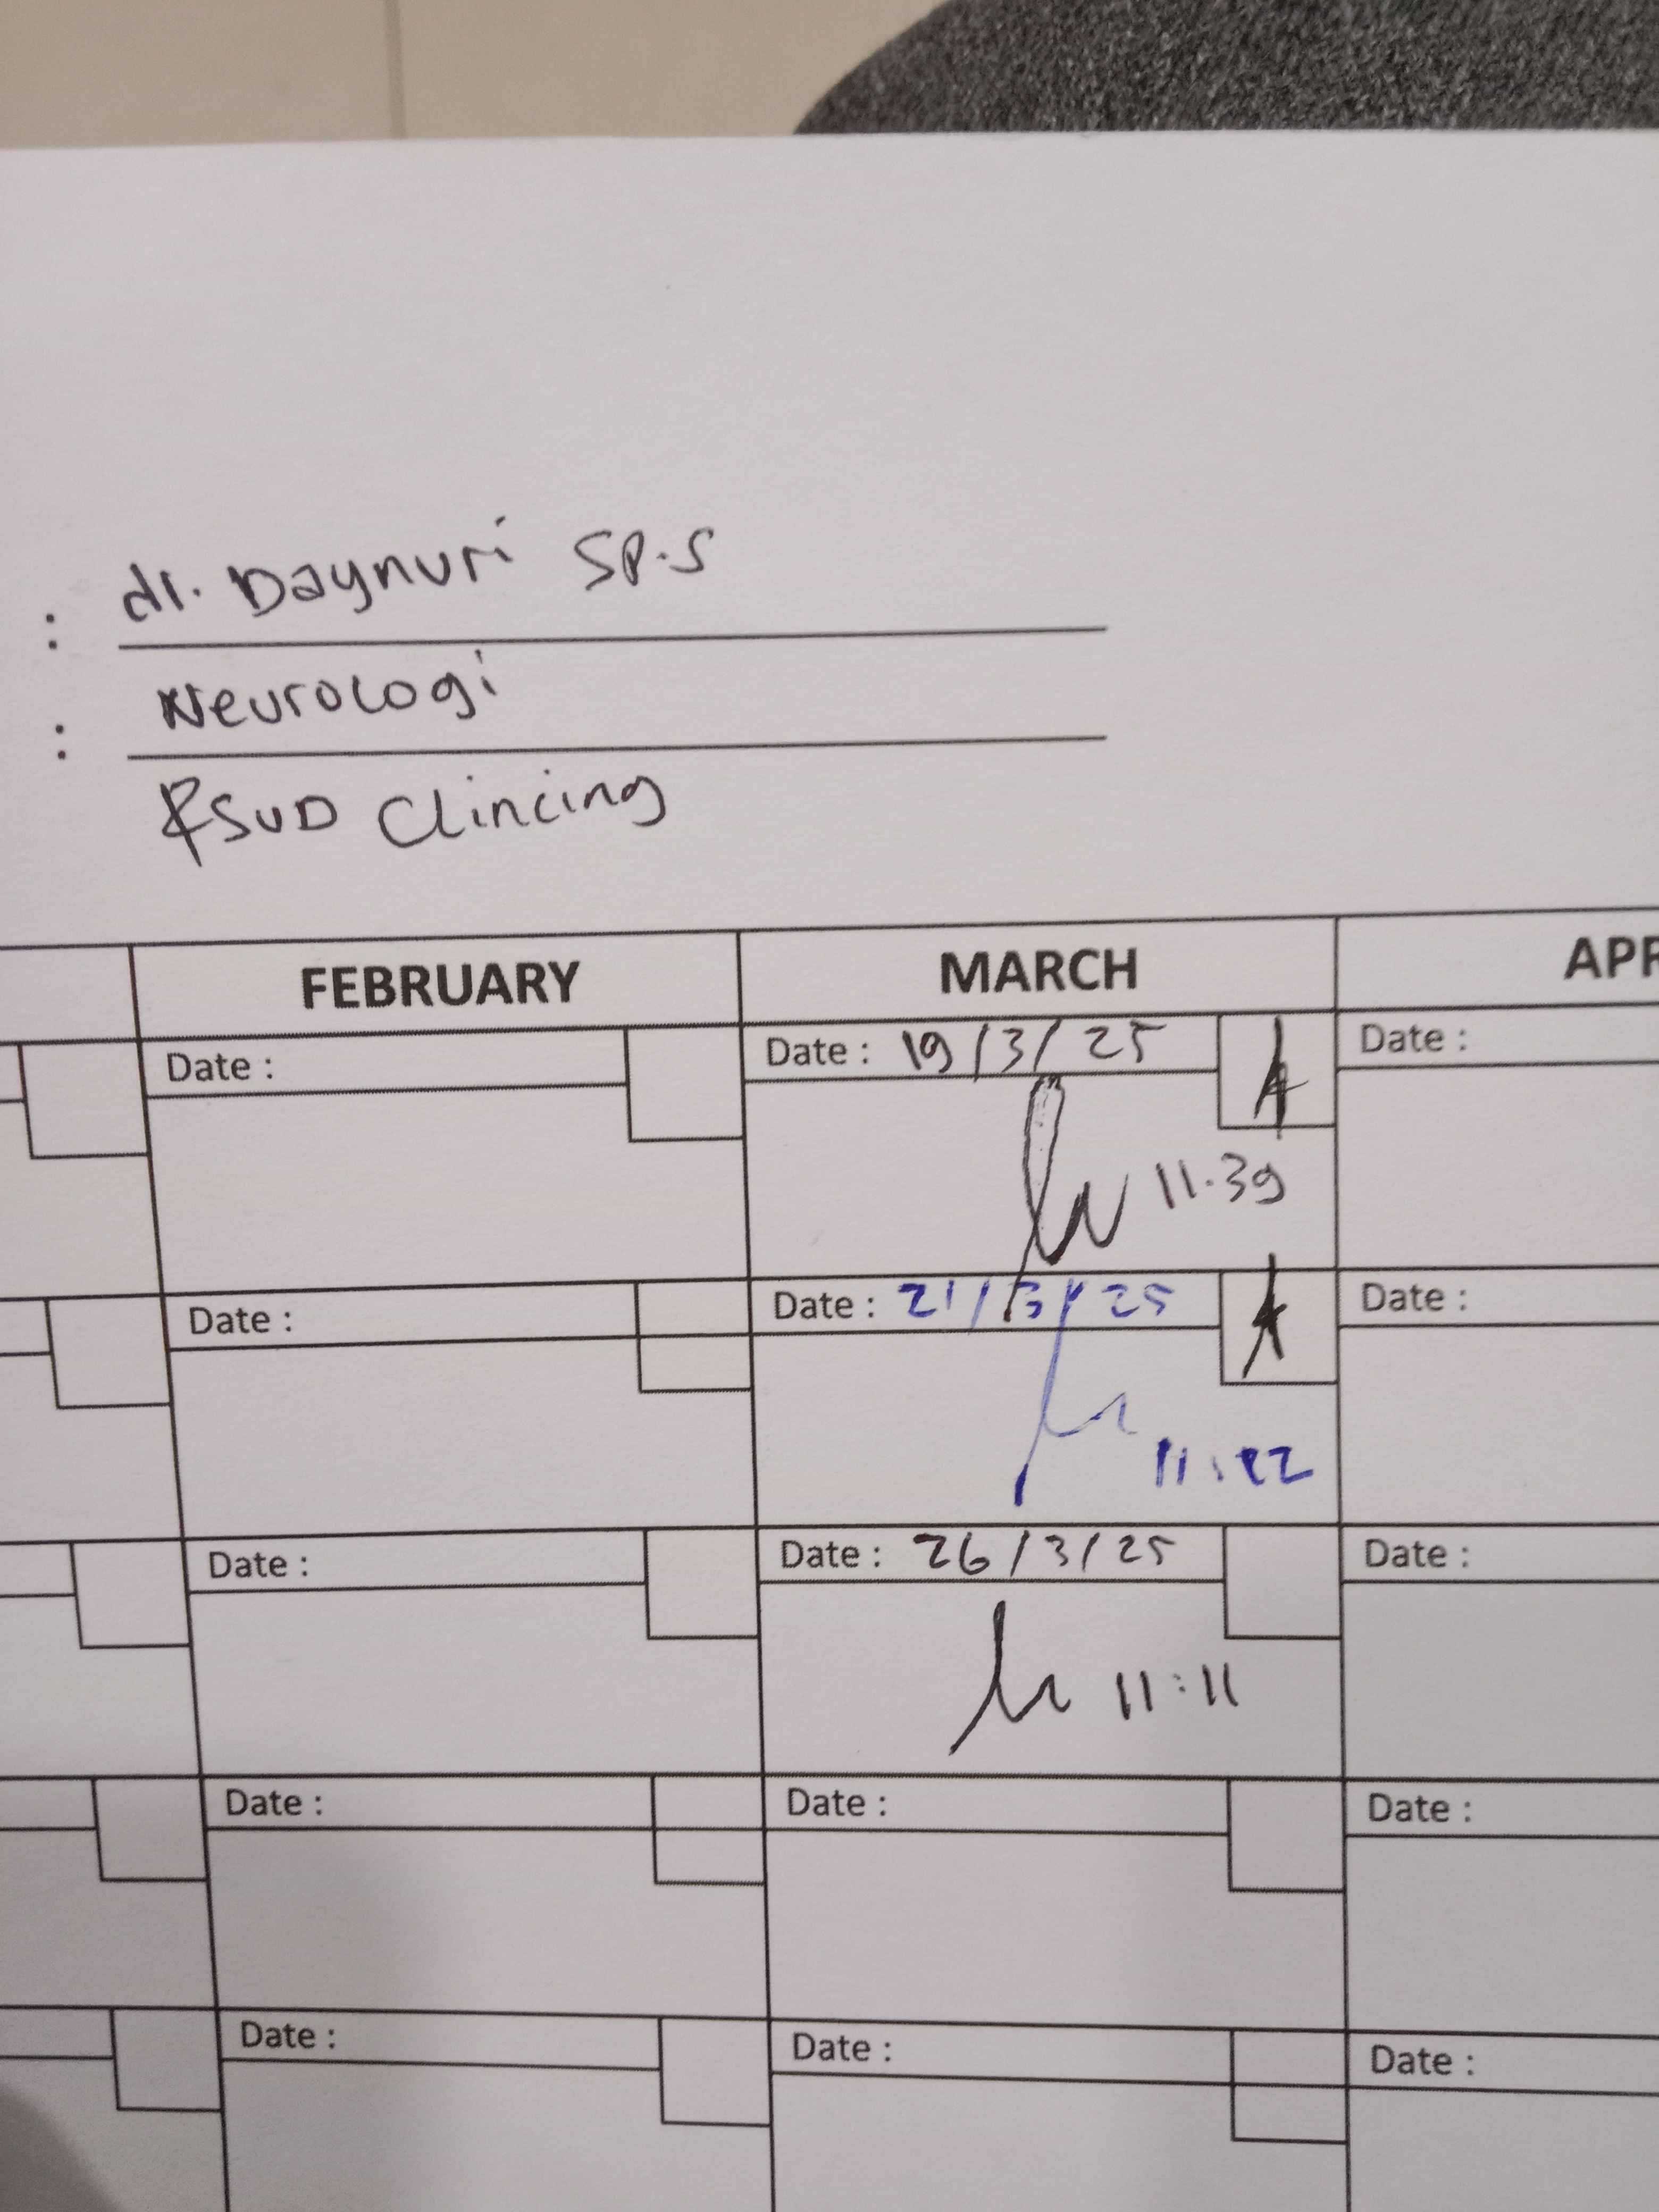 : dr. Daynuri SP.S
: Neurologi
RSUD Cilincing
FEBRUARY MARCH APR
Date : Date : 19/3/25 Date :
11.39
Date : Date : 21/3/25 Date :
11:22
Date : Date : 26/3/25 Date :
11:11
Date : Date : Date :
Date : Date : Date :